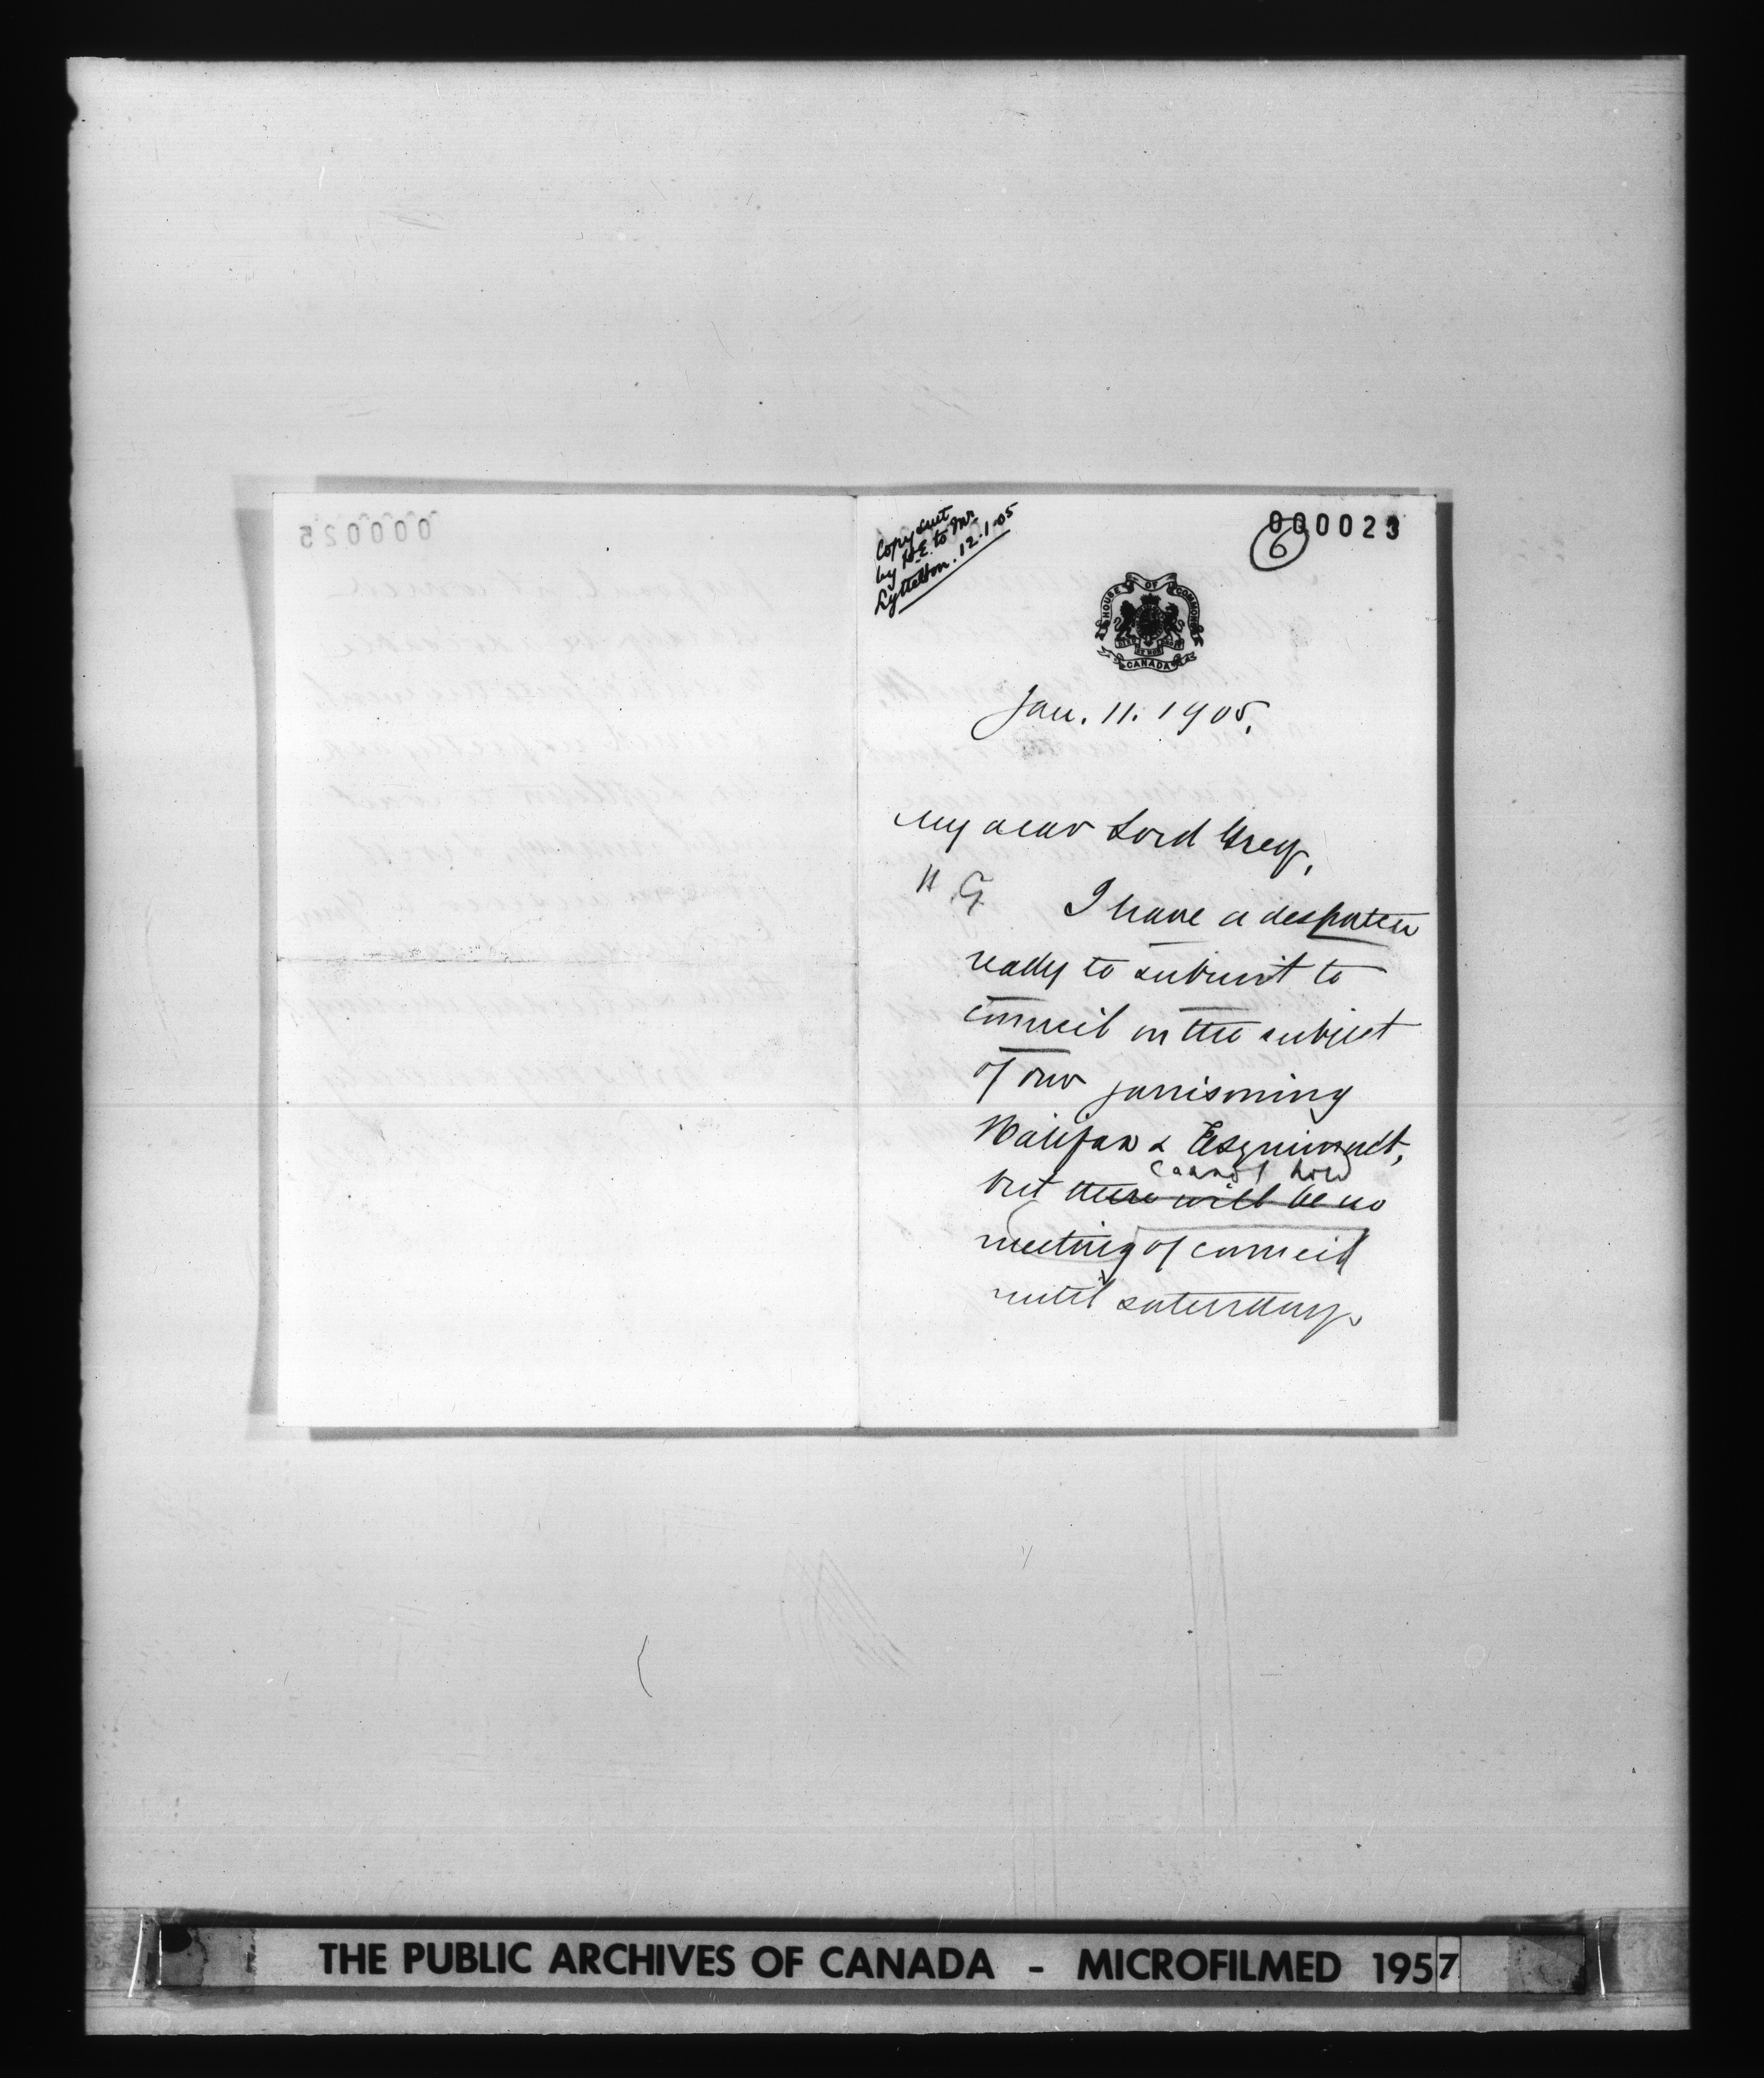 000025
Copy sent
by H.E. to Mr.
Lyttelton. 12.1.05
000023
6
HOUSE OF COMMONS
CANADA
Jan. 11. 1905.
My dear Lord Grey,
H G I have a despatch
ready to submit to
council on the subject
of our garrisoning
Halifax & Esquimalt,
cannot hold
but there will be no
meeting of council
until saturday.
THE PUBLIC ARCHIVES OF CANADA - MICROFILMED 1957